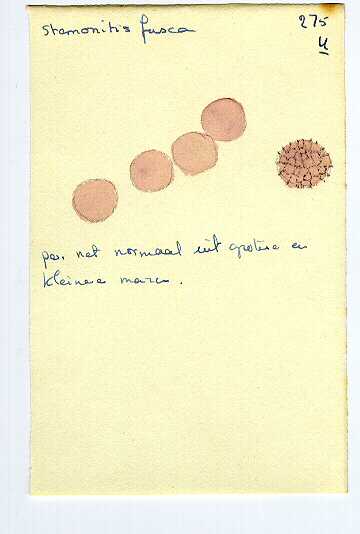 Stemonitis fusca
275
4
per. net normaal uit grotere en
kleinere mazen.